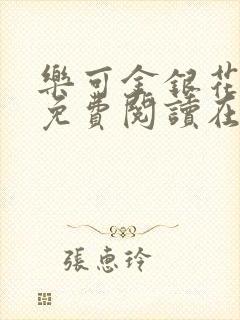 樂可金銀花
免費閱讀在
張惠玲